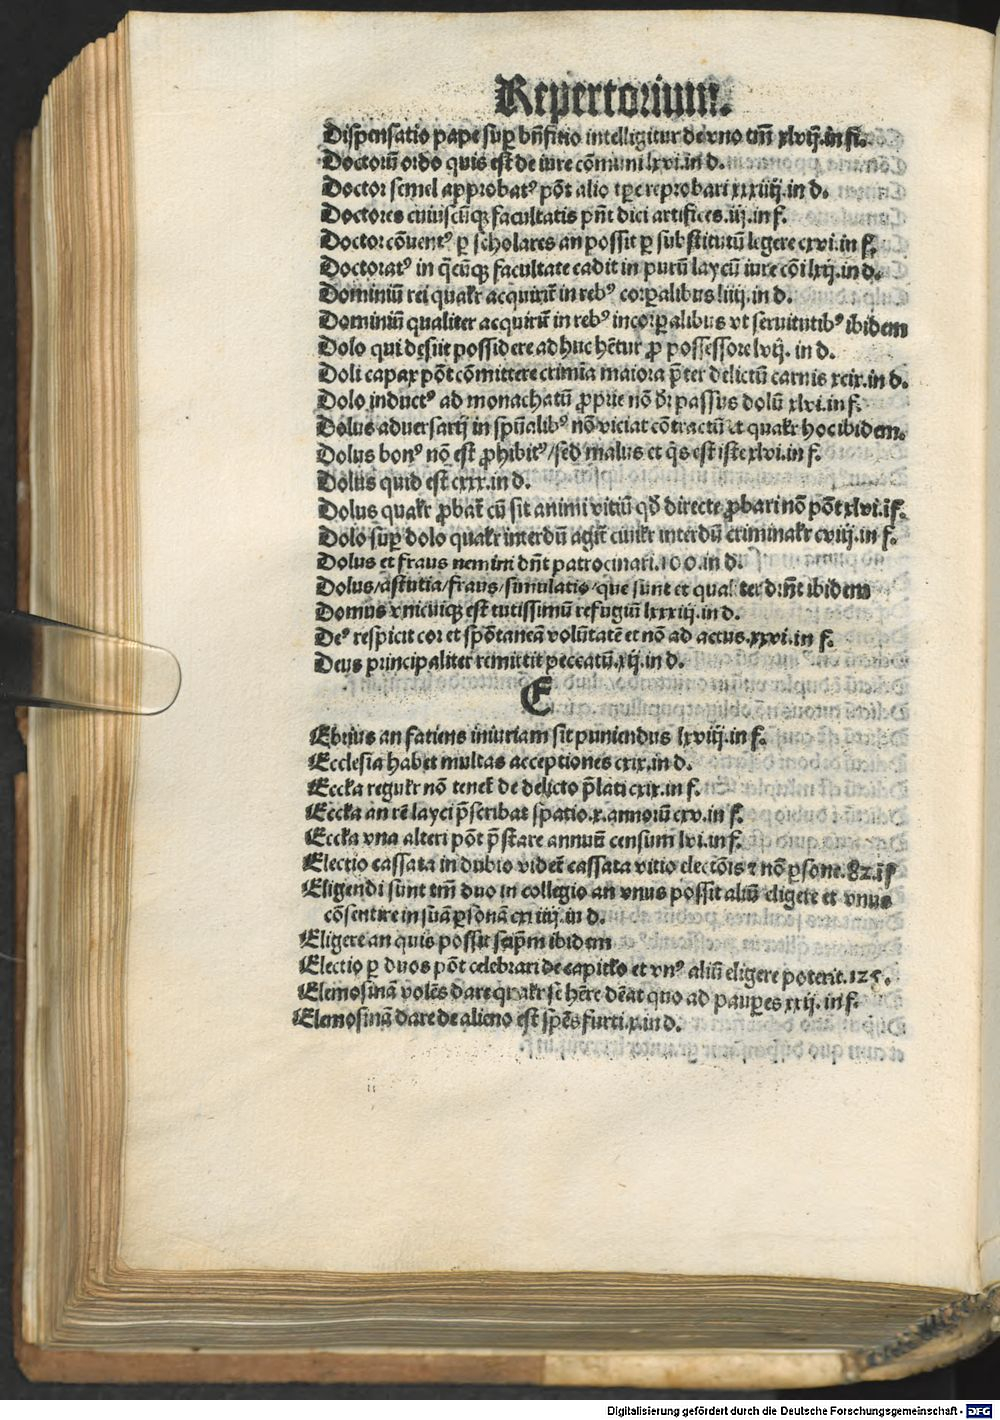 Repertorium.
Dispensatio pape suꝑ bn̄fitio intelligitur de vno tm̄ xlvij.in fi.
Doctorū ordo quis est de iure cōmuni lxvi.in d.
Doctor semel approbatꝰ pōt alio tꝑe reprobari xxxiiij.in d.
Doctores cuiuscūqꝫ facultatis pn̄t dici artifices.iij.in f.
Doctor cōuentꝰ ꝑ scholares an possit ꝑ substitutū legere cxvi.in f.
Doctoratꝰ in q̄cūqꝫ facultate cadit in purū laycū iure cōi lxij.in d.
Dominiū rei qualr̄ acquirit̄ in rebꝰ corꝑalibus liiij.in d.
Dominiū qualiter acquirit̄ in rebꝰ incorꝑalibus vt seruitutibꝰ ibidem
Dolo qui desiit possidere adhuc hētur ꝓ possessore lvij. in d.
Doli capax pōt cōmittere crimīa maiora p̄ter delictū carnis xcix.in d.
Dolo inductꝰ ad monachatū ꝓprie nō dr̄ passus dolū xlvi.in f.
Dolus aduersarij in spūalibꝰ nō viciat cōtractū et qualr̄ hoc ibidem.
Dolus bonꝰ nō est ꝓhibitꝰ/sed malus et q̄s est iste xlvi.in f.
Dolus quid est cxxx.in d.
Dolus qualr̄ ꝓbat̄ cū sit animi vitiū qđ directe ꝓbari nō pōt xlvi.ī f.
Dolo suꝑ dolo qualr̄ interdū agit̄ ciuilr̄ interdū criminalr̄ cviij.in f.
Dolus et fraus nemini dn̄t patrocinari.100.in d.
Dolus/astutia/fraus/simulatio/que sunt et qualiter dn̄t ibidem
Domus vnicuiqꝫ est tutissimū refugiū lxxxiij.in d.
Deꝰ respicit cor et spōtaneā volūtatē et nō ad actus.xxvi.in f.
Deus principaliter remittit peccatū.xij.in d.
E
Ebrius an fatiens iniuriam sit puniendus lxviij.in f.
Ecclesia habet multas acceptiones cxix.in d.
Eccl̄a regulr̄ nō tenet̄ de delicto p̄lati cxix.in f.
Eccl̄a an rē layci p̄scribat spatio.x.annorū cxv.in f.
Eccl̄a vna alteri pōt p̄stare annuū censum lvi.in f.
Electio cassata in dubio videt̄ cassata vitio electōis ⁊ nō ꝑsone.82.ī f
Eligendi sunt tm̄ duo in collegio an vnus possit aliū eligere et vnus
cōsentire in suā ꝑsonā cxiiij.in d.
Eligere an quis possit seip̄m ibidem
Electio ꝑ duos pōt celebrari de capitl̄o et vnꝰ aliū eligere poterit.125.
Elemosinā volēs dare qualr̄ se hēre dēat quo ad pauꝑes xxij. in f.
Elemosinā dare de alieno est spēs furti.x.in d.
Digitalisierung gefördert durch die Deutsche Forschungsgemeinschaft - DFG